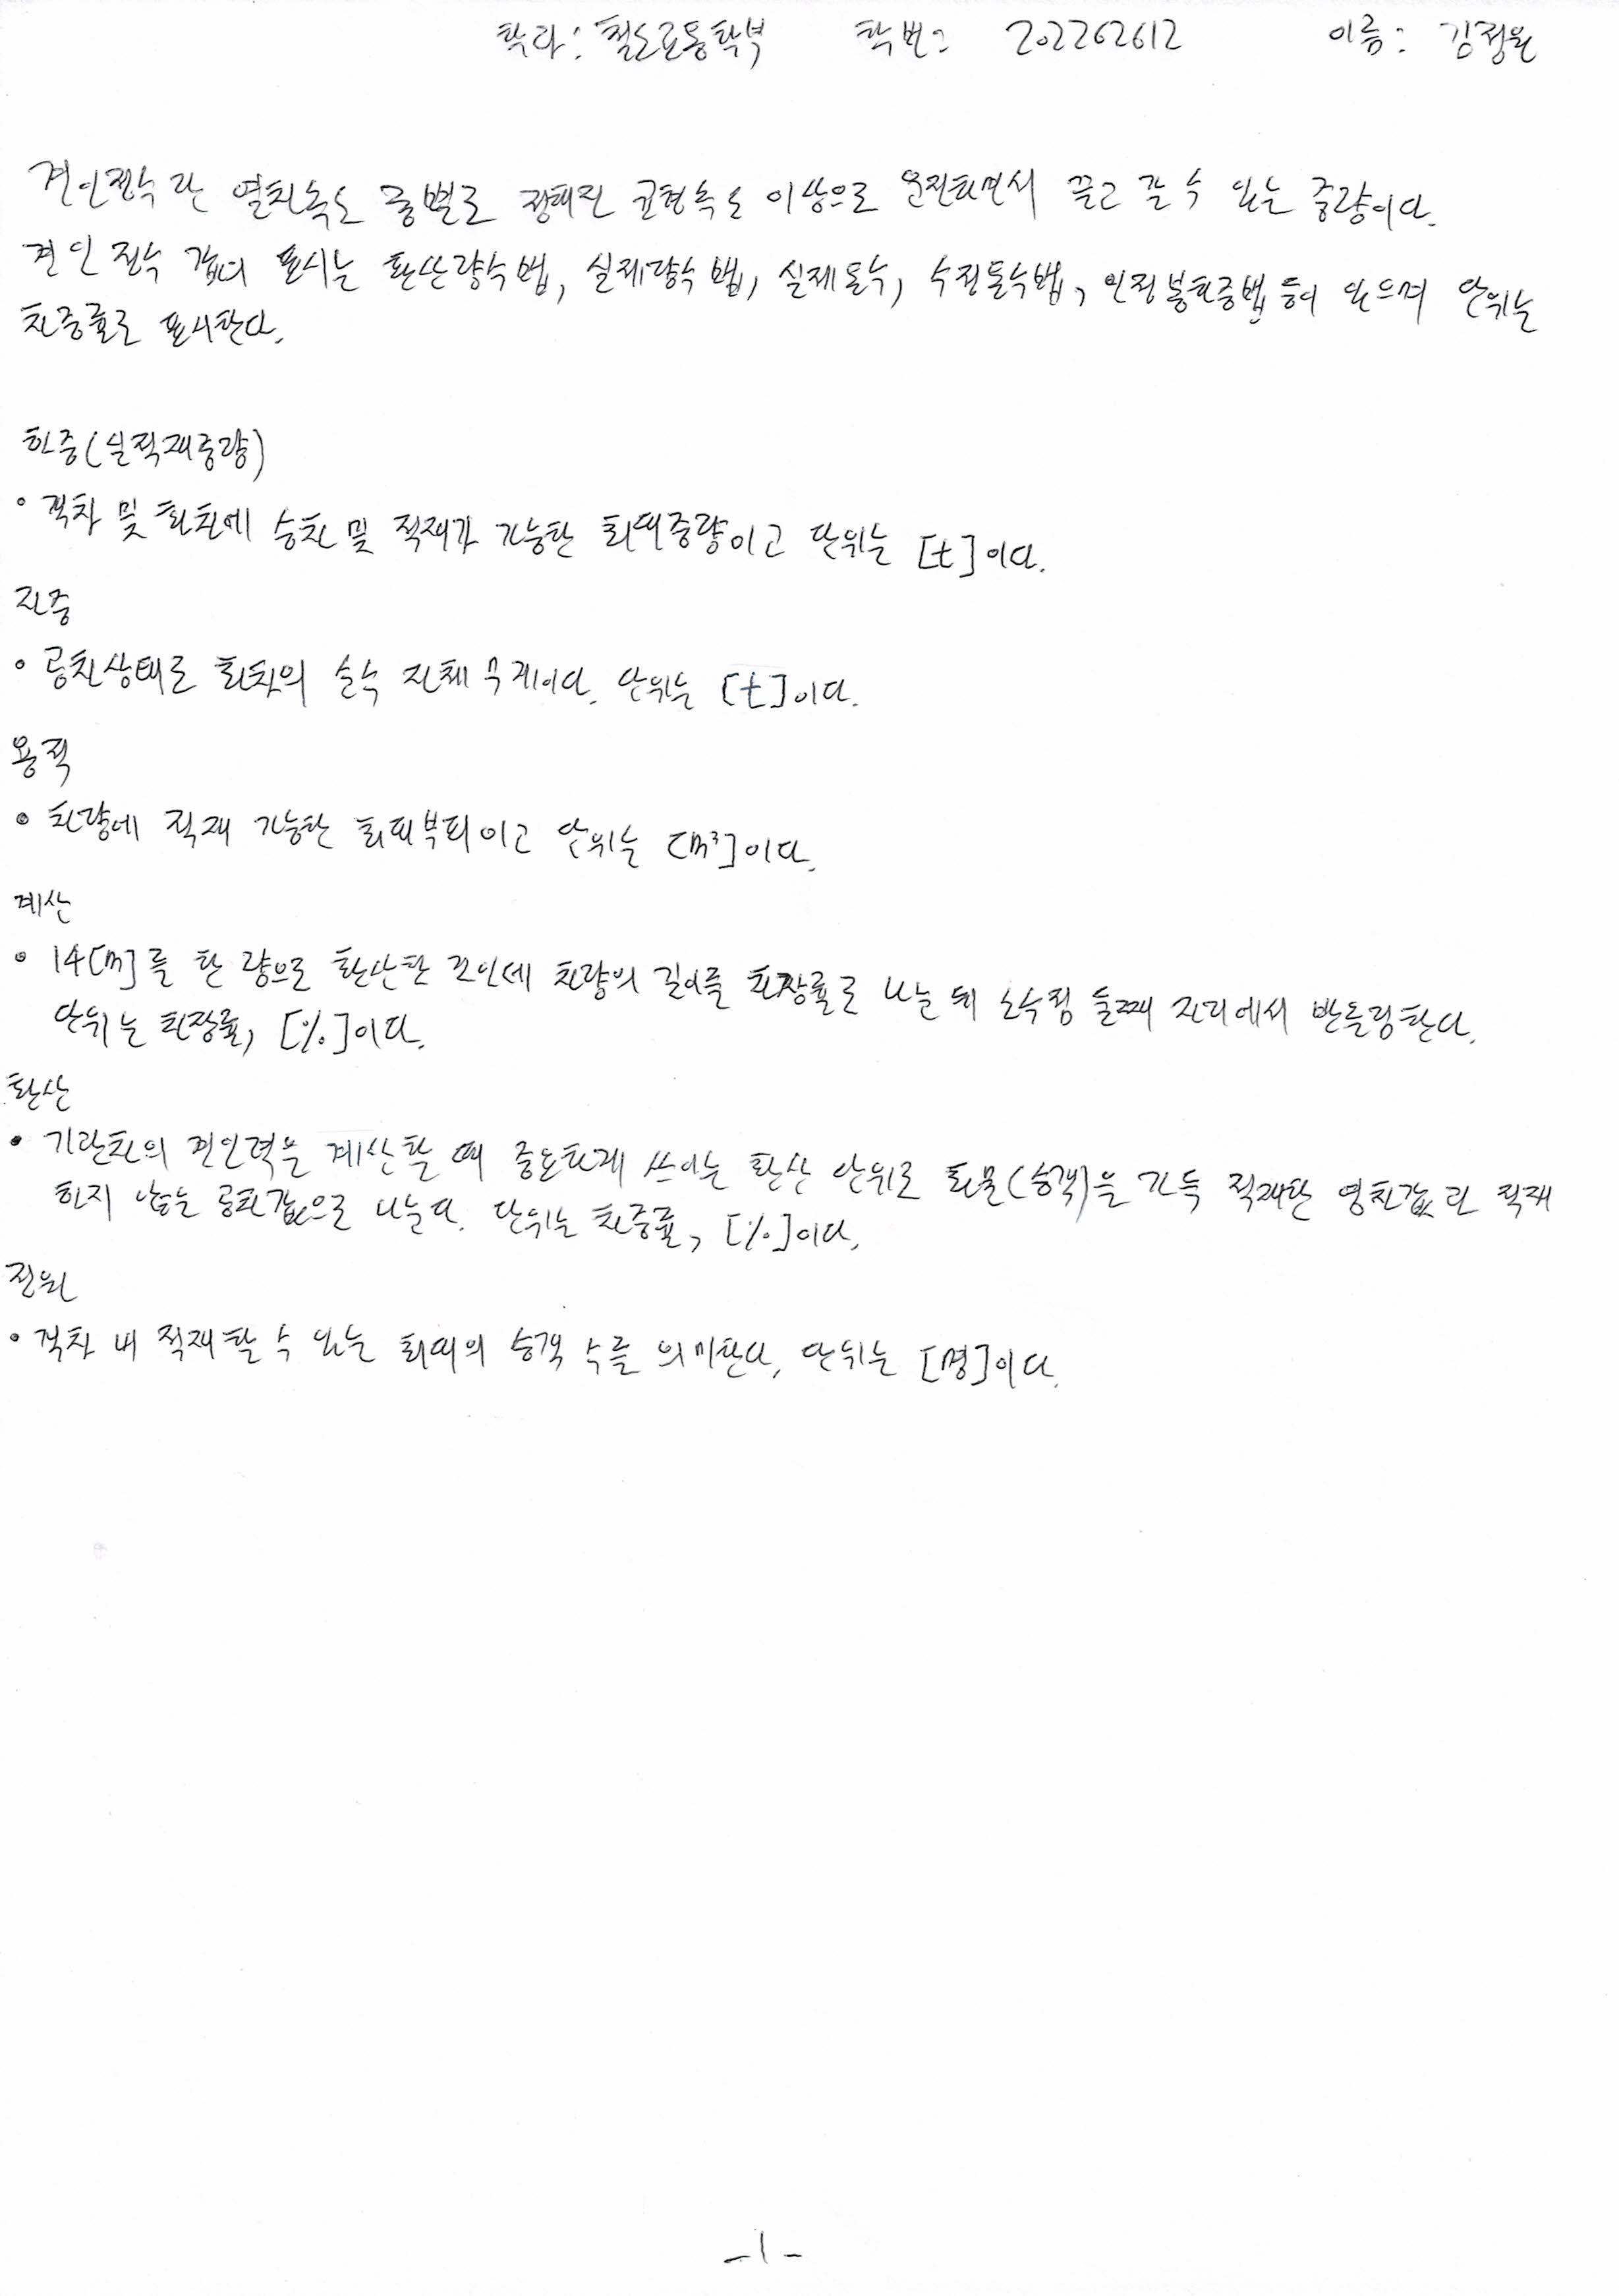 학과: 철도교통학부 학번: 202262612 이름: 김정원
견인정수란 열차속도 종별로 정해진 균형속도 이상으로 운전하면서 끌고 갈 수 있는 중량이다.
견인 정수 값의 표시는 환산량수법, 실제량수법, 실제톤수, 수정톤수법, 인장봉하중법 등이 있으며 단위는
차중률로 표시한다.
하중(실적재중량)
• 객차 및 화차에 승차 및 적재가 가능한 최대중량이고 단위는 [t]이다.
자중
• 공차상태로 화차의 순수 자체 무게이다. 단위는 [t]이다.
용적
• 차량에 적재 가능한 최대부피이고 단위는 [m³]이다.
계산
• 14[m]를 한 량으로 환산한 것인데 차량의 길이를 차장률로 나눈 뒤 소수점 둘째 자리에서 반올림한다.
단위는 차장률, [%]이다.
환산
• 기관차의 견인력을 계산할 때 중요하게 쓰이는 환산 단위로 화물(승객)을 가득 적재한 영차값과 적재
하지 않는 공차값으로 나눈다. 단위는 차중률, [%]이다.
정원
• 객차 내 적재할 수 있는 최대의 승객 수를 의미한다. 단위는 [명]이다.
-1-